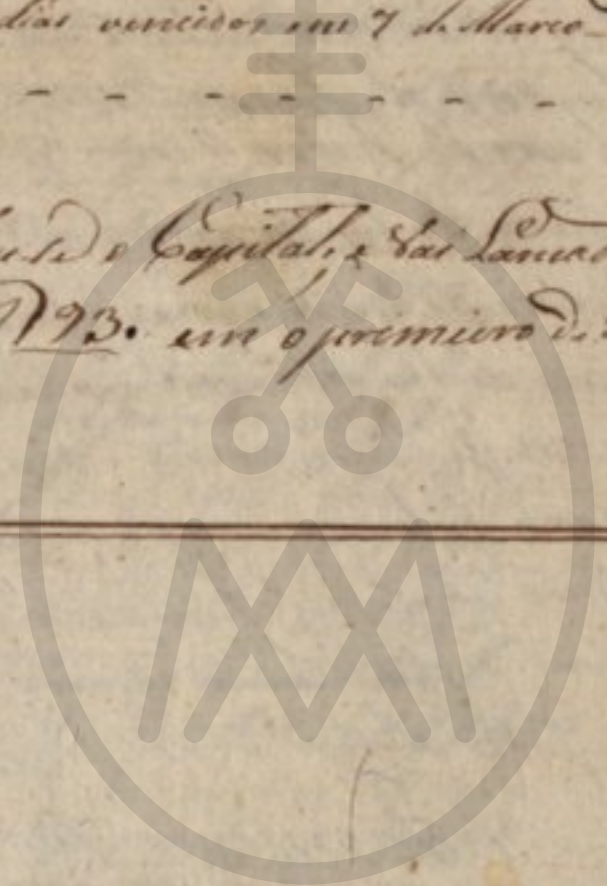 dias vencidos em 7 de Marco
o Capital, e das
1793. em o primeiro de